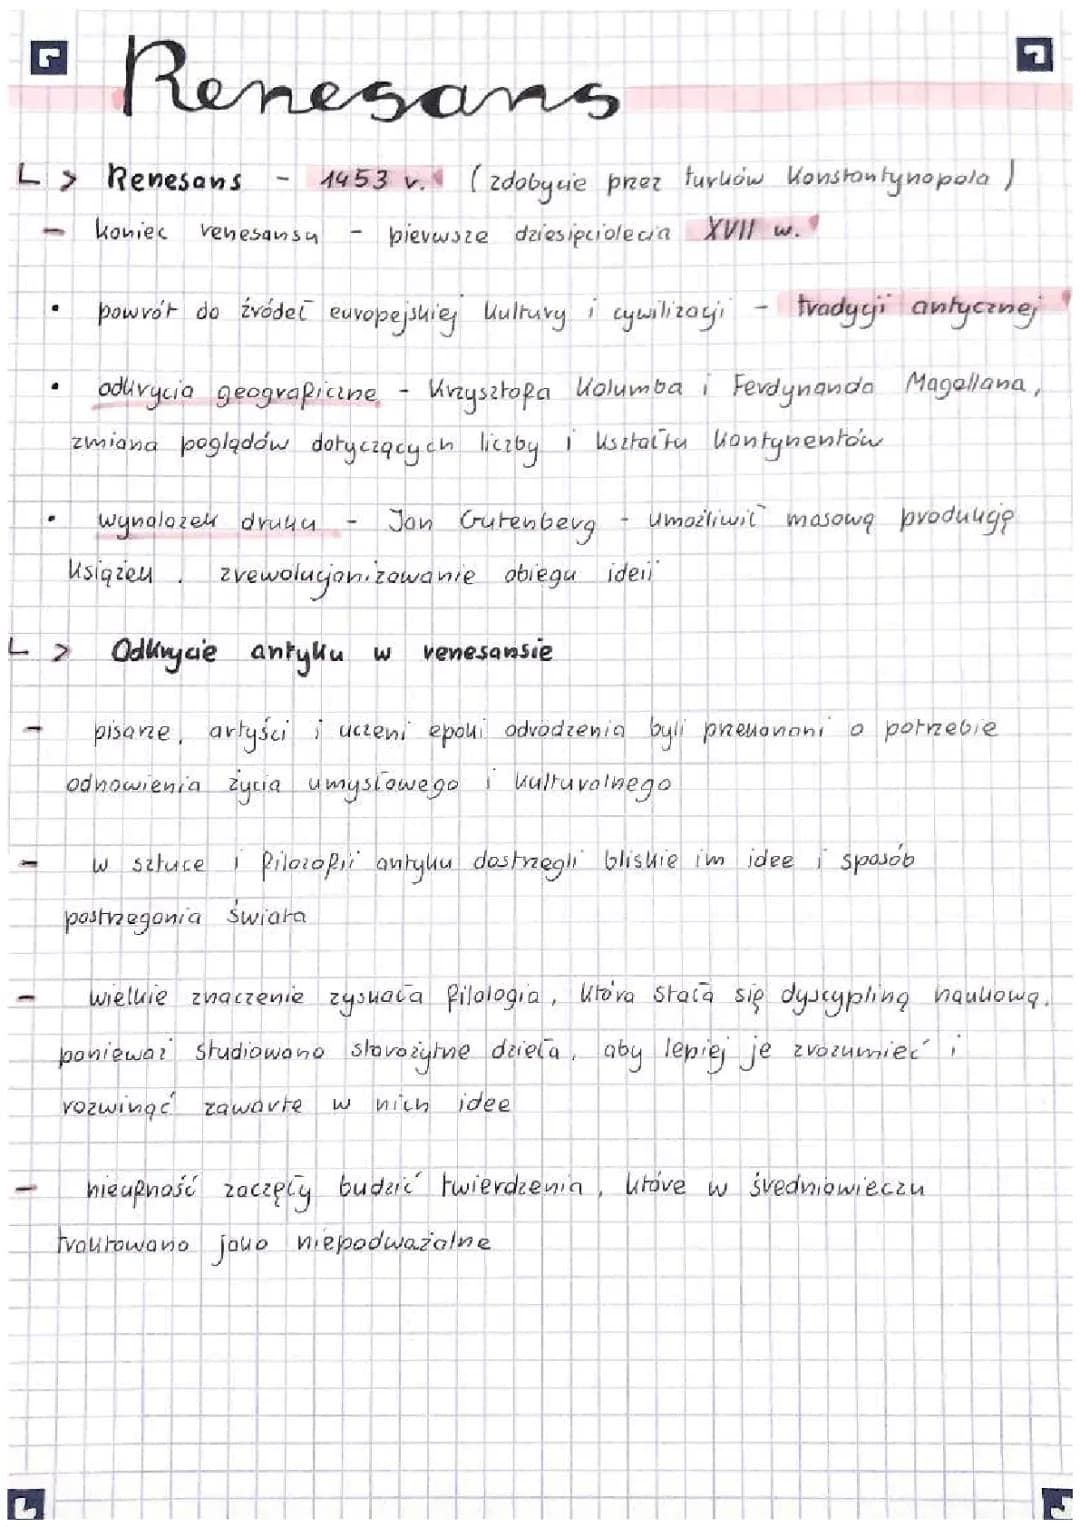 Renesans
Renesans - 1453 r. (zdobycie przez turków Konstantynopola)
- koniec renesansu - pierwsze dziesięciolecia XVII w.
• powrót do źródeł europejskiej kultury i cywilizacji - tradycji antycznej
• odkrycia geograficzne - Krzysztofa Kolumba i Ferdynanda Magellana,
zmiana poglądów dotyczących liczby i kształtu kontynentów
• wynalazek druku - Jan Gutenberg - umożliwił masową produkcję
książek, zrewolucjonizowanie obiegu ideii
Odkrycie antyku w renesansie
- pisarze, artyści i uczeni epoki odrodzenia byli przekonani o potrzebie
odnowienia życia umysłowego i kulturalnego
- w sztuce i filozofii antyku dostrzegli bliskie im idee i sposób
postrzegania świata
- wielkie znaczenie zyskała filologia, która stałą się dyscypliną naukową,
ponieważ studiowano starożytne dzieła, aby lepiej je zrozumieć i
rozwinąć zawarte w nich idee
- nieufność zaczęły budzić twierdzenia, które w średniowieczu
traktowano jako niepodważalne